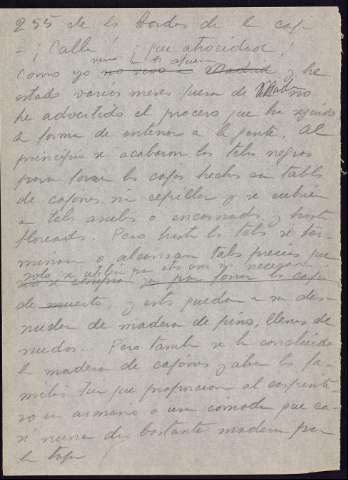 255 de los bordes de la caja
- ¡Calla! ¡que atrocidad!
Como yo no vivo en Madrid y he
estado varios meses fuera de Madrid no
he advertido el proceso que ha seguido
la forma de enterrar a la gente. Al
principio se acabaron las telas negras
para forrar las cajas hechas con tablas
de cajones sin cepillar y se cubrían
con telas azules o encarnadas y hasta
floreadas. Pero hasta las telas se ter-
minaron o alcanzan tales precios que
solo se utilizan para
no se compran ya para forrar las cajas
de muerto, y estas quedan a su des-
nudez de madera de pino, llenas de
nudos. Pero también se ha concluido
la madera de cajones y ahora las fa-
milias tien que proporcionar al carpinte
ro un armario o una cómoda que ca-
si nunca da bastante madera para
la tapa